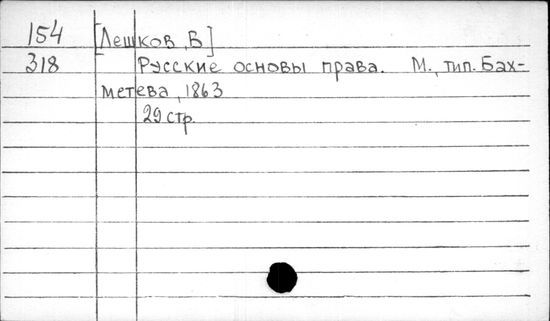 154 [Лешков, В]
318 Русские основы права. М., тип. Бах-
метева, 1863
29 стр.